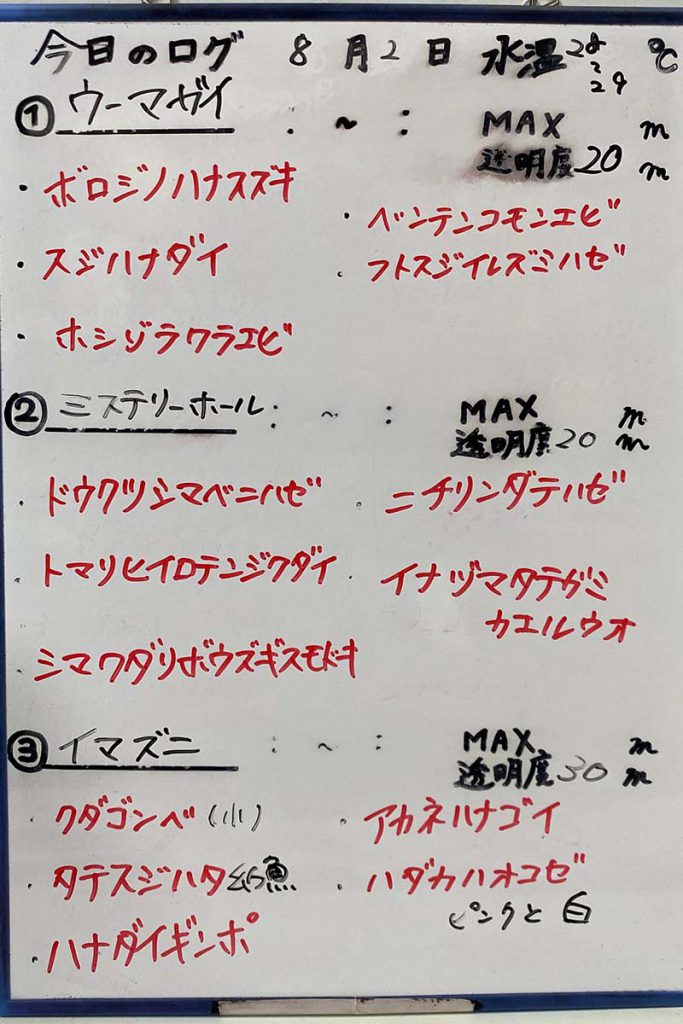 今日のログ 8月2日 水温28~29℃
①ウーマガイ : ~ : MAX m
透明度20m
・ボロジノハナスズキ
・ベンテンコモンエビ
・スジハナダイ
・フトスジイレズミハゼ
・ホシゾラワラエビ
②ミステリーホール: ~ : MAX m
透明度20m
・ドウクツシマベニハゼ
・ニチリンダテハゼ
・トマリヒイロテンジクダイ
・イナヅマタテガミ
カエルウオ
シマワダリボウズギスモドキ
③イマズニ : ~ : MAX m
透明度30m
・クダゴンベ(小)
・アカネハナゴイ
・タテスジハタ幼魚
・ハダカハオコゼ
ピンクと白
・ハナダイギンポ